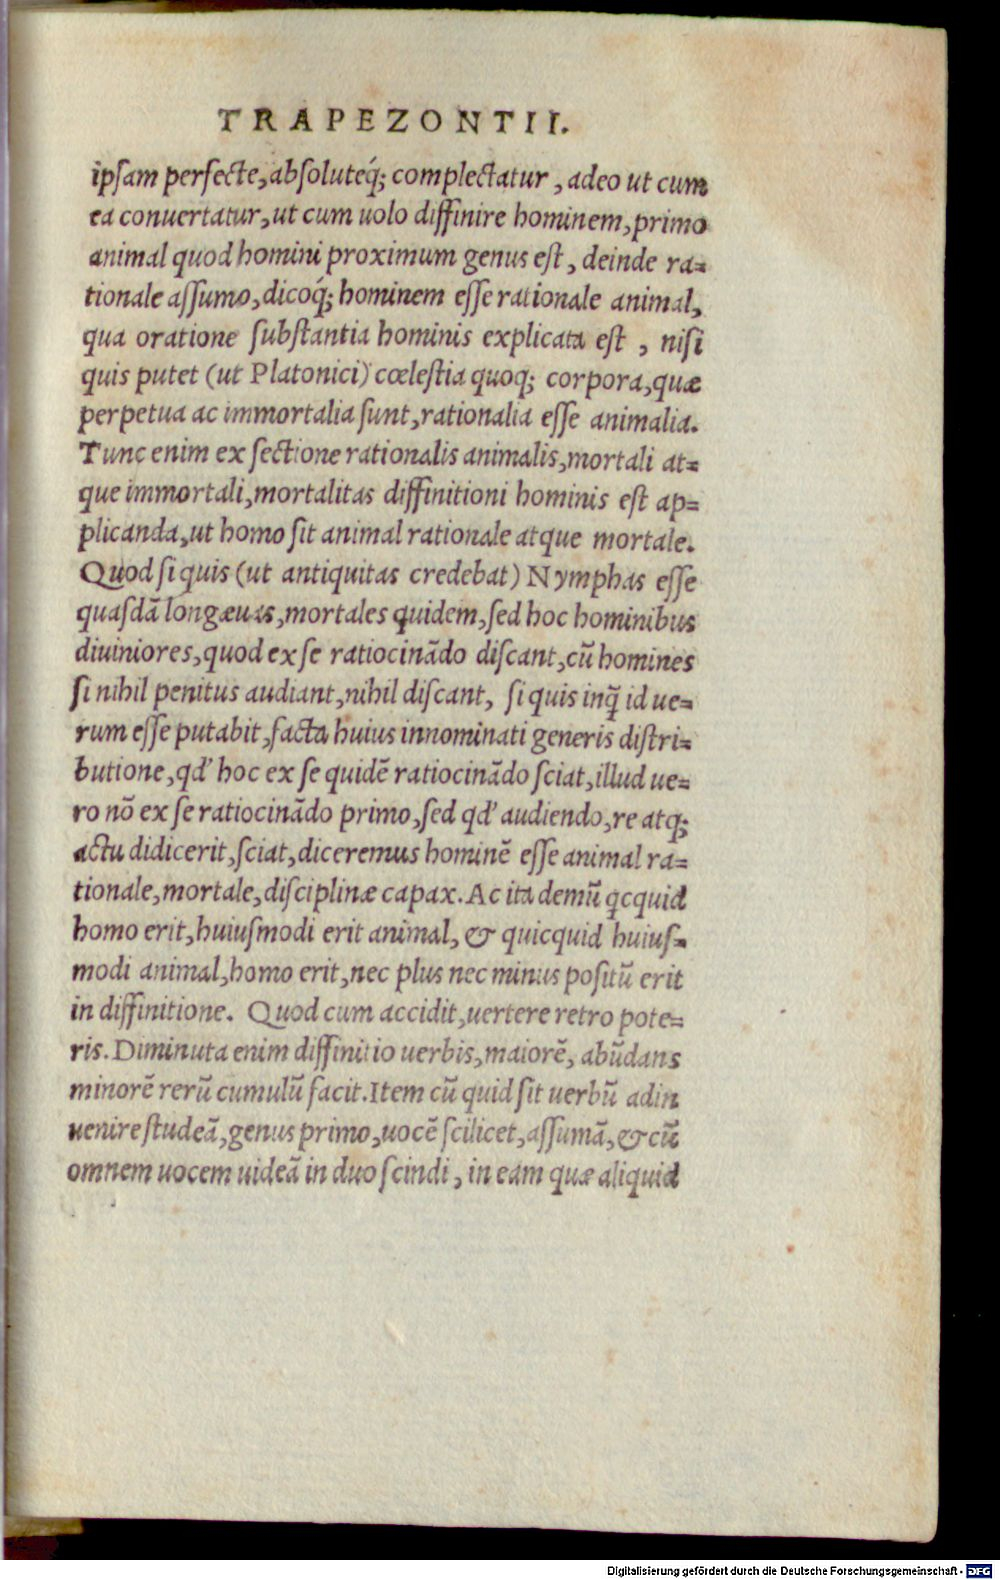 TRAPEZONTII.
ipſam perfecte, abſoluteq́; complectatur, adeo ut cum
ea conuertatur, ut cum uolo diffinire hominem, primo
animal quod homini proximum genus eſt, deinde ra=
tionale aſſumo, dicoq́; hominem eſſe rationale animal,
qua oratione ſubſtantia hominis explicata eſt, niſi
quis putet (ut Platonici) cœleſtia quoq; corpora, quæ
perpetua ac immortalia ſunt, rationalia eſſe animalia.
Tunc enim ex ſectione rationalis animalis, mortali at=
que immortali, mortalitas diffinitioni hominis eſt ap=
plicanda, ut homo ſit animal rationale atque mortale.
Quod ſi quis (ut antiquitas credebat) Nymphas eſſe
quaſdā longæuas, mortales quidem, ſed hoc hominibus
diuiniores, quod ex ſe ratiocinādo diſcant, cū homines
ſi nihil penitus audiant, nihil diſcant, ſi quis inq̄ id ue=
rum eſſe putabit, facta huius innominati generis diſtri=
butione, qd' hoc ex ſe quidē ratiocinādo ſciat, illud ue=
ro nō ex ſe ratiocinādo primo, ſed qd' audiendo, re atq;
actu didicerit, ſciat, diceremus hominē eſſe animal ra=
tionale, mortale, diſciplinæ capax. Ac ita demū qcquid
homo erit, huiuſmodi erit animal, & quicquid huiuſ=
modi animal, homo erit, nec plus nec minus poſitū erit
in diffinitione. Quod cum accidit, uertere retro pote=
ris. Diminuta enim diffinitio uerbis, maiorē, abūdans
minorē rerū cumulū facit. Item cū quid ſit uerbū adin
uenire ſtudeā, genus primo, uocē ſcilicet, aſſumā, & cū
omnem uocem uideā in duo ſcindi, in eam quæ aliquid
Digitalisierung gefördert durch die Deutsche Forschungsgemeinschaft - DFG